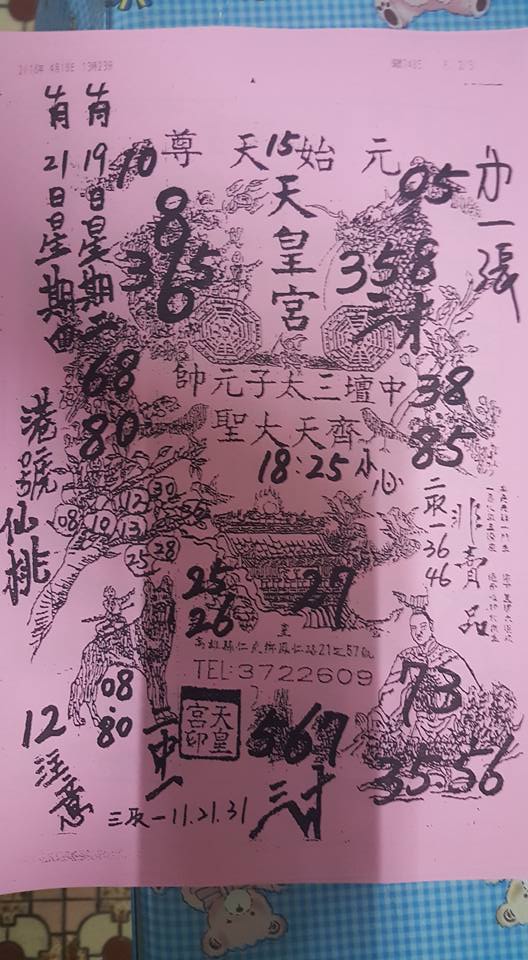 2016年 4月18日 13時23分
肖19日星期二
肖21日星期四
港號仙桃
元始天尊
15
天皇宮
10
05
中一張
8
3 6 5
0
358
三才
68
80
中壇三太子元帥
齊天大聖
38
85
18:25 小心
二取一 36
46
非賣品
12 30
08 10 13
25 28
25
26
27
高雄縣仁武鄉鳳仁路21之57號
TEL:3722609
08
80
天皇宮印
一中一
567
三才
73
35 56
12注意
三取一 11.21.31